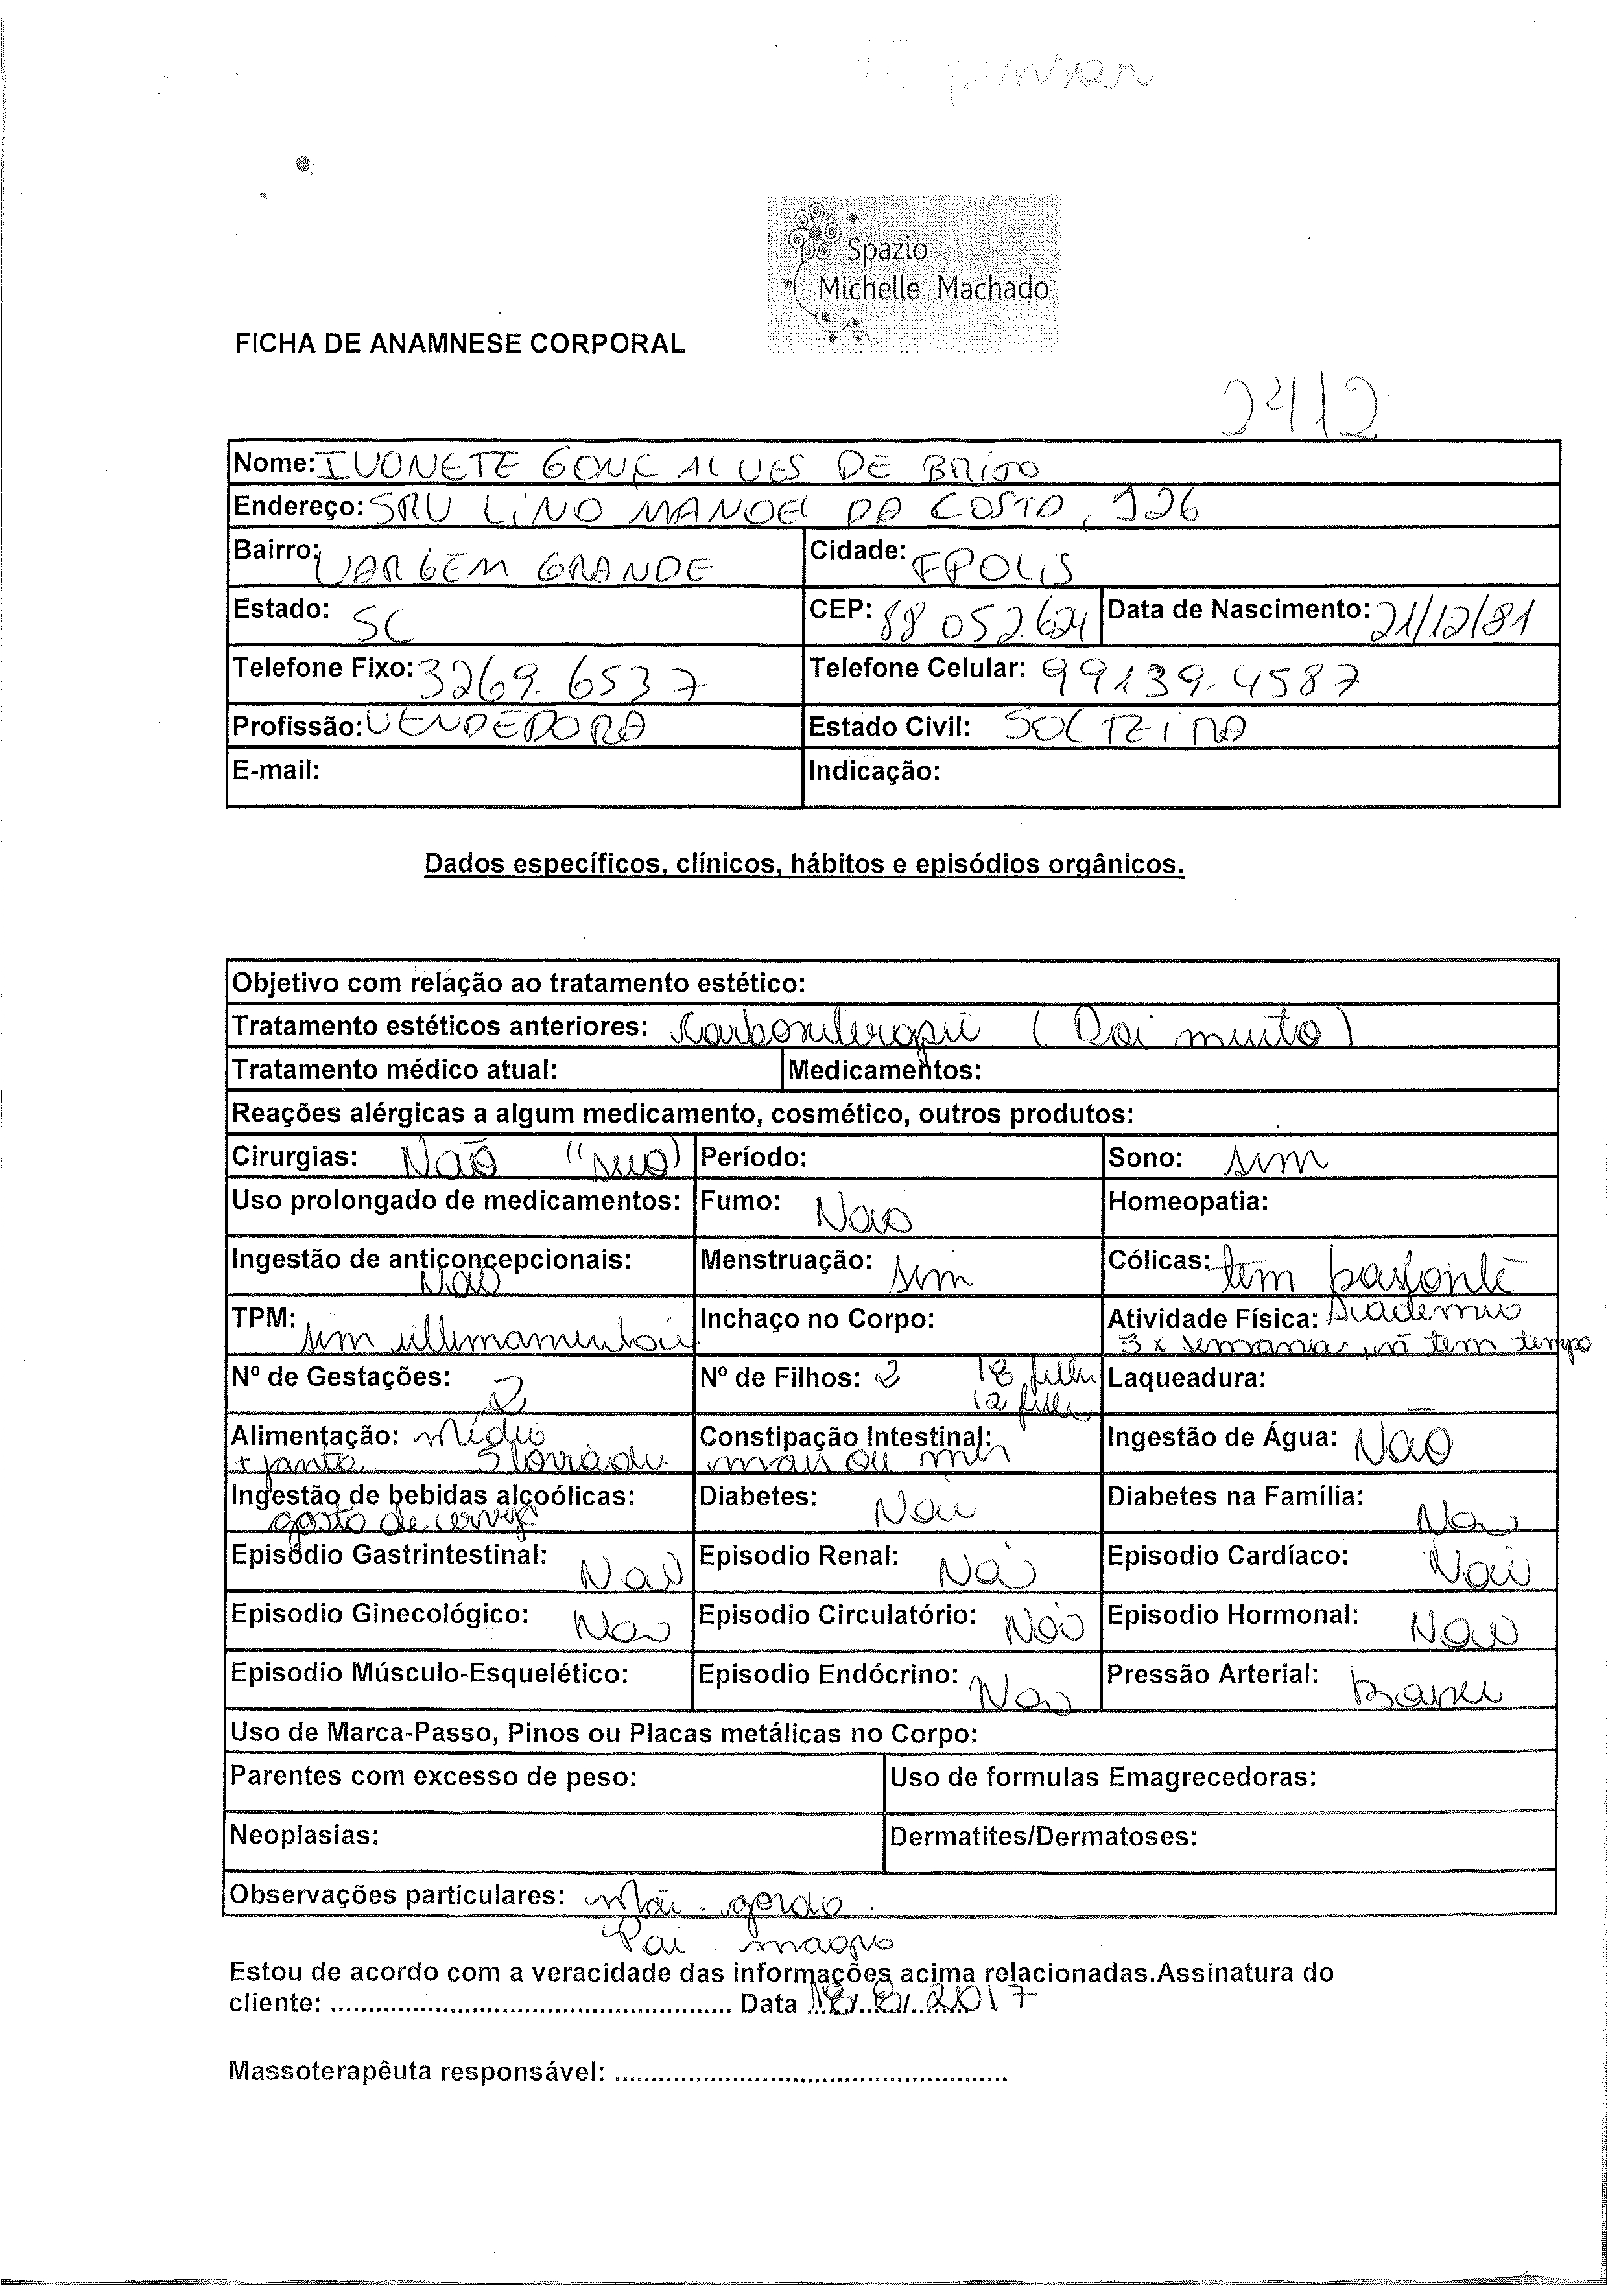 pensar
Spazio
Michelle Machado
FICHA DE ANAMNESE CORPORAL
2412
Nome: IVONETE GONÇALVES DE BRITO
Endereço: SRV LINO MANOEL DA COSTA, 126
Bairro: VARGEM GRANDE Cidade: FPOLIS
Estado: SC CEP: 88052621 Data de Nascimento: 21/12/81
Telefone Fixo: 3269.6537 Telefone Celular: 99139.4587
Profissão: VENDEDORA Estado Civil: SOLTEIRA
E-mail: Indicação:
Dados específicos, clínicos, hábitos e episódios orgânicos.
Objetivo com relação ao tratamento estético:
Tratamento estéticos anteriores: Carboxiterapia (Doi muito)
Tratamento médico atual: Medicamentos:
Reações alérgicas a algum medicamento, cosmético, outros produtos:
Cirurgias: Não Período: Sono: sim
Uso prolongado de medicamentos: Fumo: Nao Homeopatia:
Ingestão de anticoncepcionais: Menstruação: sim Cólicas: tem bastante
Não
TPM: Inchaço no Corpo: Atividade Física: Academia
sim ultimamente 3x semana tem tempo
Nº de Gestações: 2 Nº de Filhos: 2 18 Laqueadura:
12
Alimentação: Constipação Intestinal: Ingestão de Água: Não
+ janta mais ou
Ingestão de bebidas alcoólicas: Diabetes: Nao Diabetes na Família: Nao
gosto de cerveja
Episódio Gastrintestinal: Nao Episodio Renal: Nao Episodio Cardíaco: Nao
Episodio Ginecológico: Nao Episodio Circulatório: Nao Episodio Hormonal: Nao
Episodio Músculo-Esquelético: Episodio Endócrino: Nao Pressão Arterial: Baixa
Uso de Marca-Passo, Pinos ou Placas metálicas no Corpo:
Parentes com excesso de peso: Uso de formulas Emagrecedoras:
Neoplasias: Dermatites/Dermatoses:
Observações particulares: Mãe. gorda.
Pai magro
Estou de acordo com a veracidade das informações acima relacionadas.Assinatura do
cliente: ..................................................... Data 18/8/2017
Massoterapêuta responsável: ....................................................